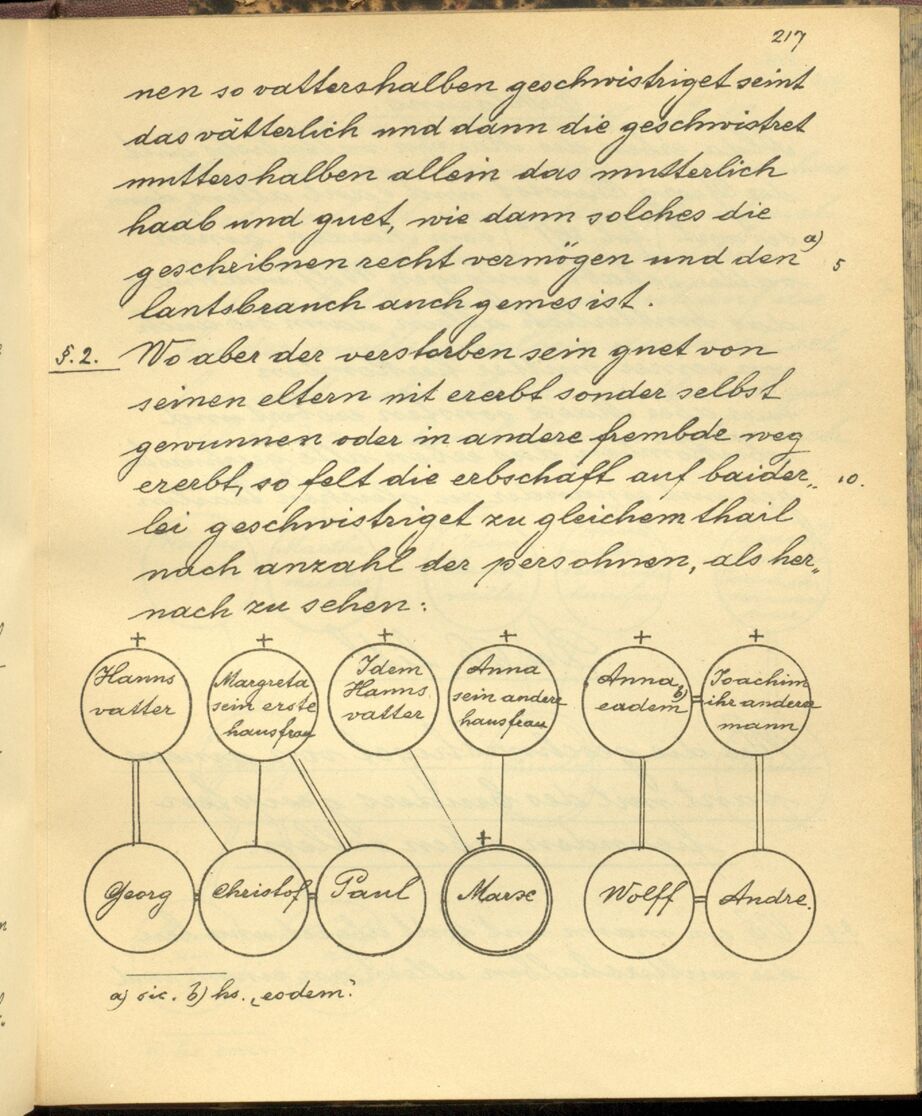 217
nen so vattershalben geschwistriget seint
das vätterlich und dann die geschwistret
muttershalben allein das mutterlich
haab und guet, wie dann solches die
geschribnen recht vermögen und den a) 5
lantsbrauch auch gemes ist.
§. 2. Wo aber der verstorben sein guet von
seinen eltern nit ererbt sonder selbst
gewunnen oder in andere frembde weg
ererbt, so felt die erbschaft auf baider„ 10.
lei geschwistriget zu gleichem thail
nach anzahl der persohnen, als her„
nach zu sehen:
+ + + + + +
Hanns
vatter
Margreta
sein erste
hausfrau
Idem
Hanns
vatter
Anna
sein andere
hausfrau
Anna
eadem b)
=
Joachim
ihr anderer
mann
Georg
=
Christof
=
Paul
+
Marx
Wolff
=
Andre.
a) sic. b) hs. „eodem".